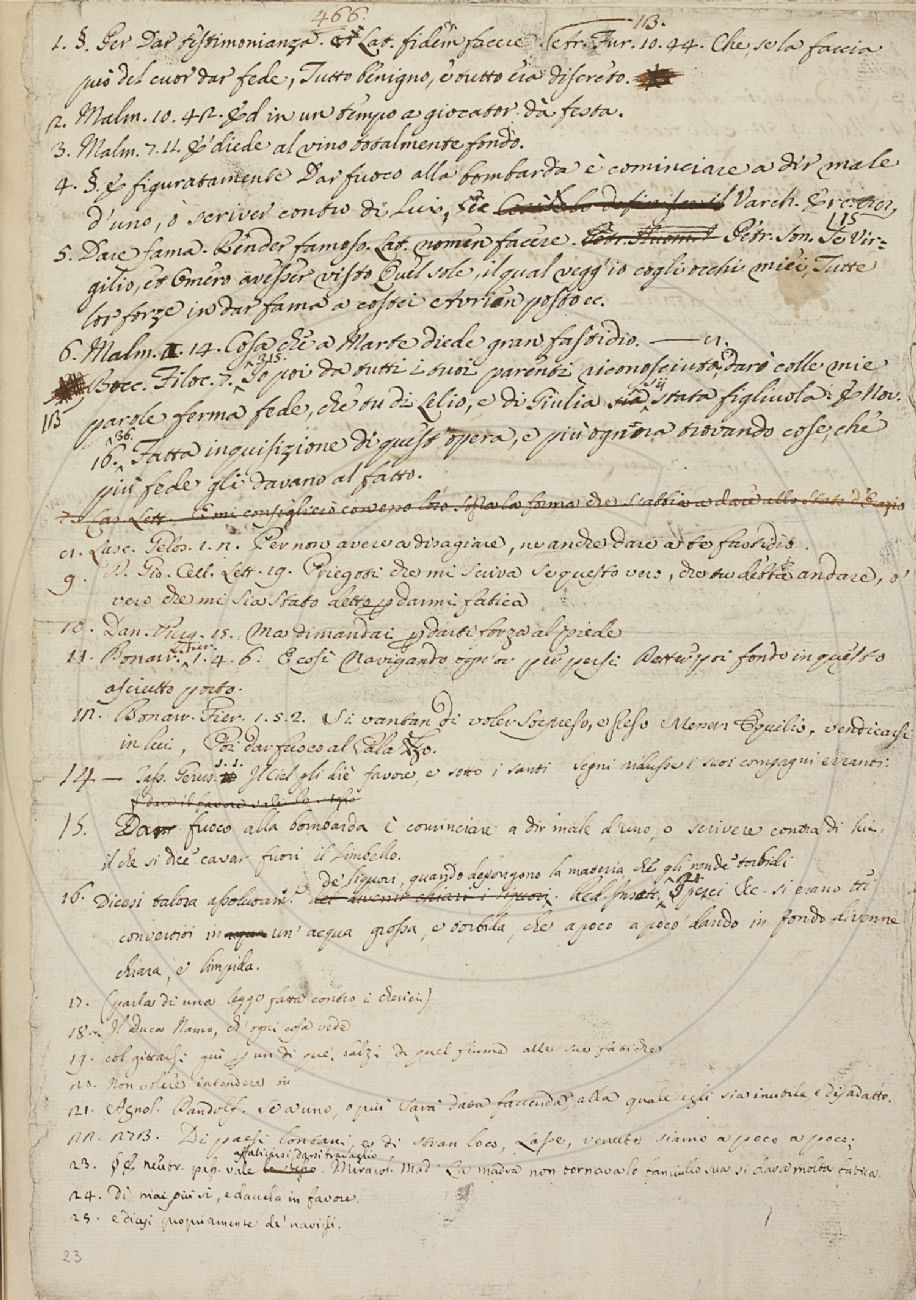 466. 113.
1. §. Per Dar testimonianza. Lat. fidem facere. Petr. Fur. 10. 44. Che, se la faccia
può del cuor dar fede, Tutto benigno, e tutto era discreto.
2. Malm. 10. 42. Ed in un tempo a giocator dà festa.
3. Malm. 7. 11. E diede al vino totalmente fondo.
4. §. E figuratamente Dar fuoco alla bombarda è cominciare a dir male
d'uno, o scriver contro di lui, Varch. Ercol.
115
5. Dare fama. Render famoso. Lat. nomen facere. Petr. Son. Se Vir=
gilio, et Omero avesser visto Quel sole, il qual vegg'io cogli occhi miei, Tutte
lor forze in dar fama a costei Avrian posto ec.
6. Malm. 1. 14. Cosa che a Marte diede gran fastidio.
Bocc. Filoc. 7. 315. Io poi da tutti i tuoi parenti riconosciuta, darò colle mie
113 parole ferma fede, che tu di Lelio, e di Giulia sij stata figliuola: E Nov.
16. 36. Fatta inquisizione di quest'opera, e più ognora trovando cose, che
più fede gli davano al fatto.
Car. Lett. mi consiglierò con esso loro sopra la forma che s'abbia a dare allo Stato d'Orazio
Lasc. Gelos. 1. 2. Per non avere a disagiare, ne anche dare a te fastidio.
9. Gio. Cell. Lett. 19. Priegoti che mi scriva se questo vero, che tu debba andare, o
vero che mi sia stato detto p darmi fatica
10. Dan. Purg. 15. Ma dimandai p darti forza al piede
11. Bonarr. Fier. 1. 4. 6. E così Navigando ogn'or più persi Detter poi fondo in questo
asciutto porto.
12. Bonarr. Fier. 1. 5. 2. Si vantan di voler
in lui, Poi dar fuoco al
14 — Tass. Gerus. 1. 1. Il Ciel gli diè favore, e sotto i santi Segni ridusse i suoi compagni erranti.
15. Dar fuoco alla bombarda è cominciare a dir male d'uno, o scrivere contra di lui,
il che si dice cavar fuori il limbello.
de' liquori, quando depongono la materia, che gli rende torbidi
16. Dicesi talora assolutam. del divenir chiari i liquori. Red. Insett. 124. I pesci &c. si erano tti
convertiti in un' acqua grossa, e torbida, che a poco a poco dando in fondo divenne
chiara, e limpida.
17. (parla di una legge fatta contro i cherici.)
18. Il Duca Namo, ch' ogni cosa vede
19. col gittarsi qui p un di que' balzi di quel fiume alle sue fatiche
20. Non volere intendere
21. Agnol. Pandolf. Se a uno, o più sarà data faccenda alla quale egli sia inutile, e disadatto.
22. Di paesi lontani, e di stran loco, Lasse, venute siamo a poco a poco;
affaticarsi darsi travaglio
23. § E neutr. pass. vale lo stesso. Miracol. Mad. La madre non tornava lo fanciullo suo si dava molta fatica.
24. Di mai più sì, e davela in favore.
25. e dicesi propriamente de' navigli.
23